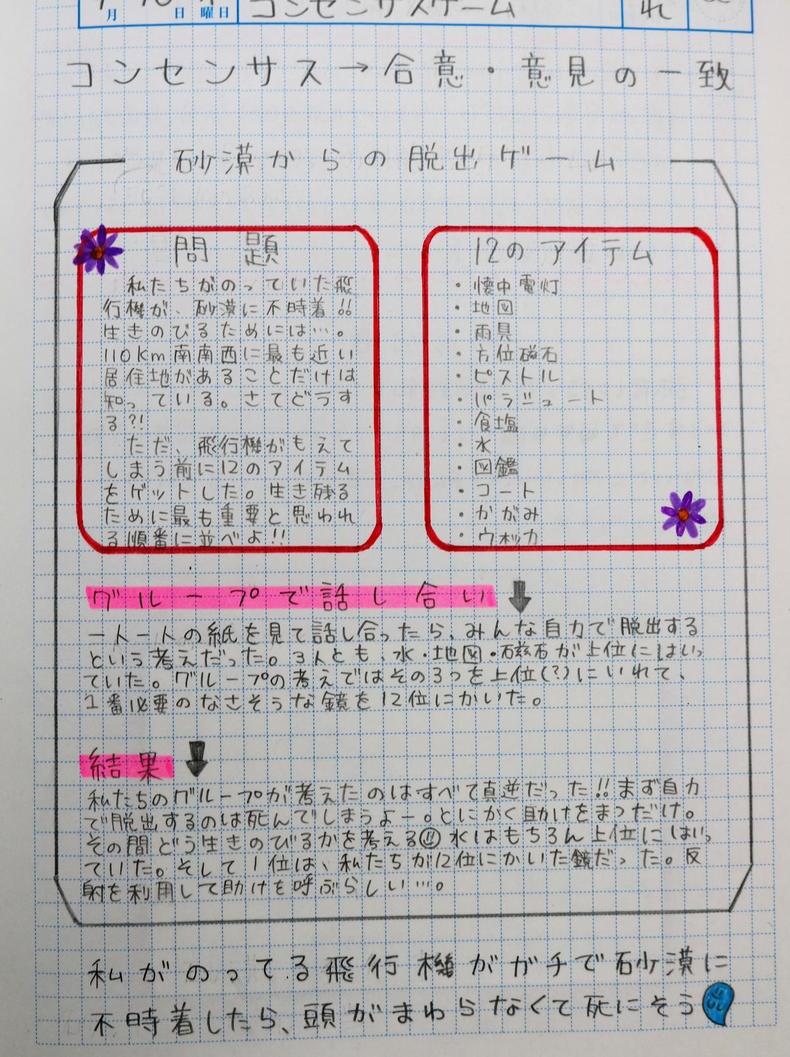 月 日 曜日 コンセンサスゲーム れ
コンセンサス→合意・意見の一致
砂漠からの脱出ゲーム
問題
私たちがのっていた飛
行機が、砂漠に不時着!!
生きのびるためには…。
110km南南西に最も近い
居住地があることだけは
知っている。さてどうす
る?!
ただ、飛行機がもえて
しまう前に12のアイテム
をゲットした。生き残る
ために最も重要と思われ
る順番に並べよ!!
12のアイテム
・懐中電灯
・地図
・雨具
・方位磁石
・ピストル
・パラシュート
・食塩
・水
・図鑑
・コート
・かがみ
・ウォッカ
グループで話し合い
一人一人の紙を見て話し合ったら、みんな自力で脱出する
という考えだった。3人とも、水・地図・磁石が上位にはいっ
ていた。グループの考えではその3つを上位(?)にいれて、
1番必要のなさそうな鏡を12位にかいた。
結果
私たちのグループが考えたのはすべて真逆だった!!まず自力
で脱出するのは死んでしまうよー。とにかく助けをまつだけ。
その間どう生きのびるかを考える!! 水はもちろん上位にはいっ
ていた。そして1位は、私たちが12位にかいた鏡だった。反
射を利用して助けを呼ぶらしい…。
私がのってる飛行機がガチで砂漠に
不時着したら、頭がまわらなくて死にそう